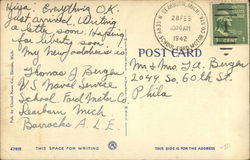 Hiya: Everything O.K.
Just arrived. Writing
a letter soon. Hoping
you write soon.
My new address is
Thomas J Burger
U.S. Naval Service
School, Ford Motor Co
Dearborn Mich
Barracks A. L E.
DEARBORN, MICH.
28 FEB
10 AM
1942
POST CARD
Mr & Mrs. T.A. Burger
2049 So. 60th St.
Phila
47918
THIS SPACE FOR WRITING
THIS SIDE IS FOR THE ADDRESS